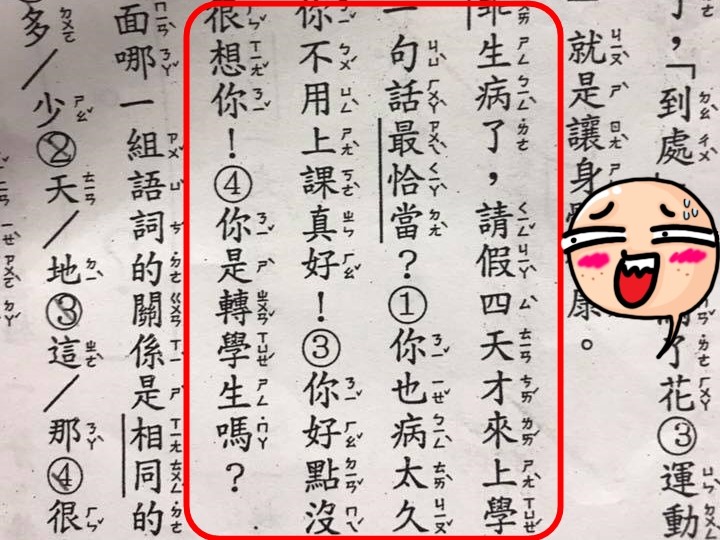 了，「到處
了花③運動
就是讓身
康。
乖生病了，請假四天才來上學
一句話最恰當？①你也病太久
你不用上課真好！③你好點沒
很想你！④你是轉學生嗎？
面哪一組語詞的關係是相同的
多／少②天／地③這／那④很